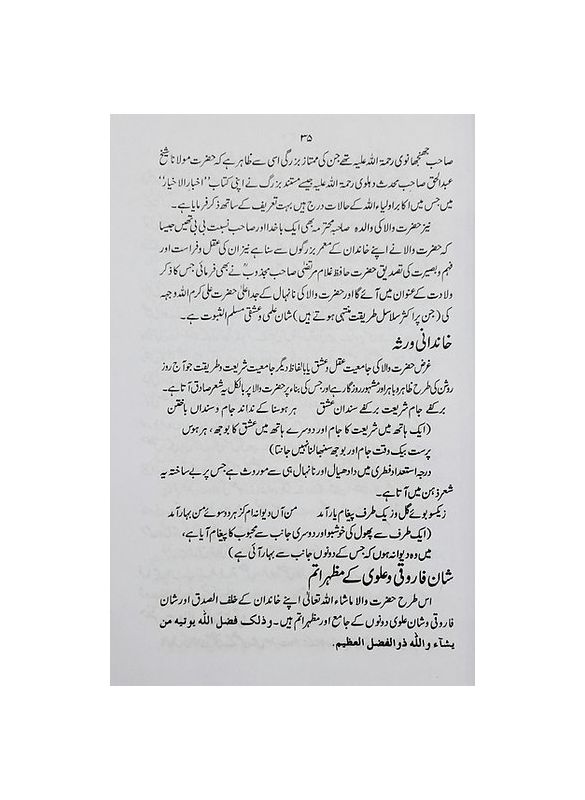 ۳۵
صاحب جھنجھانوی رحمۃ اللہ علیہ تھے جن کی ممتاز بزرگی اسی سے ظاہر ہے کہ حضرت مولانا شیخ
عبدالحق صاحب محدث دہلوی رحمۃ اللہ علیہ جیسے مستند بزرگ نے اپنی کتاب ’’اخبار الاخیار‘‘
میں جس میں اکابر اولیاء اللہ کے حالات درج ہیں بہت تعریف کے ساتھ ذکر فرمایا ہے۔
نیز حضرت والا کی والدہ صاحبہ محترمہ بھی ایک باخدا اور صاحب نسبت بی بی تھیں جیسا
کہ حضرت والا نے اپنے خاندان کے معمر بزرگوں سے سنا ہے نیز ان کی عقل و فراست اور
فہم و بصیرت کی تصدیق حضرت حافظ غلام مرتضیٰ صاحب مجذوبؒ نے بھی فرمائی جس کا ذکر
ولادت کے عنوان میں آئے گا اور حضرت والا کی نانہال کے جد اعلیٰ حضرت علی کرم اللہ وجہہ
کی (جن پر اکثر سلاسل طریقت منتہی ہوتے ہیں) شان علمی و عشقی مسلم الثبوت ہے۔
خاندانی ورثہ
غرض حضرت والا کی جامعیت عقل و عشق یا بالفاظ دیگر جامعیت شریعت و طریقت جو آج روز
روشن کی طرح ظاہر و باہر اور مشہور روزگار ہے اور جس کی بناء پر حضرت والا پر بالکل یہ شعر صادق آتا ہے۔
بر کفے جام شریعت بر کفے سندان عشق ہر ہوسنا کے نداند جام و سنداں باختن
(ایک ہاتھ میں شریعت کا جام اور دوسرے ہاتھ میں عشق کا بوجھ، ہر ہوس
پرست بیک وقت جام اور بوجھ سنبھالنا نہیں جانتا)
درجہ استعداد فطری میں دادھیال اور نانہال ہی سے موروث ہے جس پر بے ساختہ یہ
شعر ذہن میں آتا ہے۔
زیکسو بوئے گل و زیک طرف پیغام یار آمد من آں دیوانہ ام کز ہر دو سوئے من بہار آمد
(ایک طرف سے پھول کی خوشبو اور دوسری جانب سے محبوب کا پیغام آیا ہے،
میں وہ دیوانہ ہوں کہ جس کے دونوں جانب سے بہار آئی ہے)
شان فاروقی و علوی کے مظہر اتم
اس طرح حضرت والا ماشاء اللہ تعالیٰ اپنے خاندان کے خلف الصدق اور شان
فاروقی و شان علوی دونوں کے جامع اور مظہر اتم ہیں۔ وذلک فضل اللہ یوتیہ من
یشآء واللہ ذوالفضل العظیم.